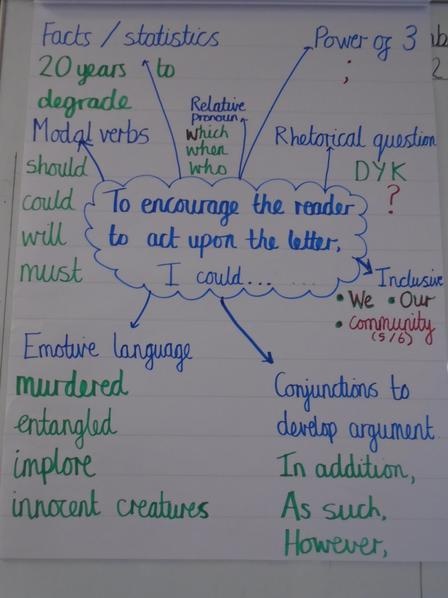 Facts / statistics
20 years to
degrade
Power of 3
;
Relative
pronoun
which
when
who
Modal verbs
should
could
will
must
Rhetorical question
DYK
?
To encourage the reader
to act upon the letter,
I could...
Inclusive
• We • Our
• community
(5/6)
Emotive language
murdered
entangled
implore
innocent creatures
Conjunctions to
develop argument
In addition,
As such,
However,